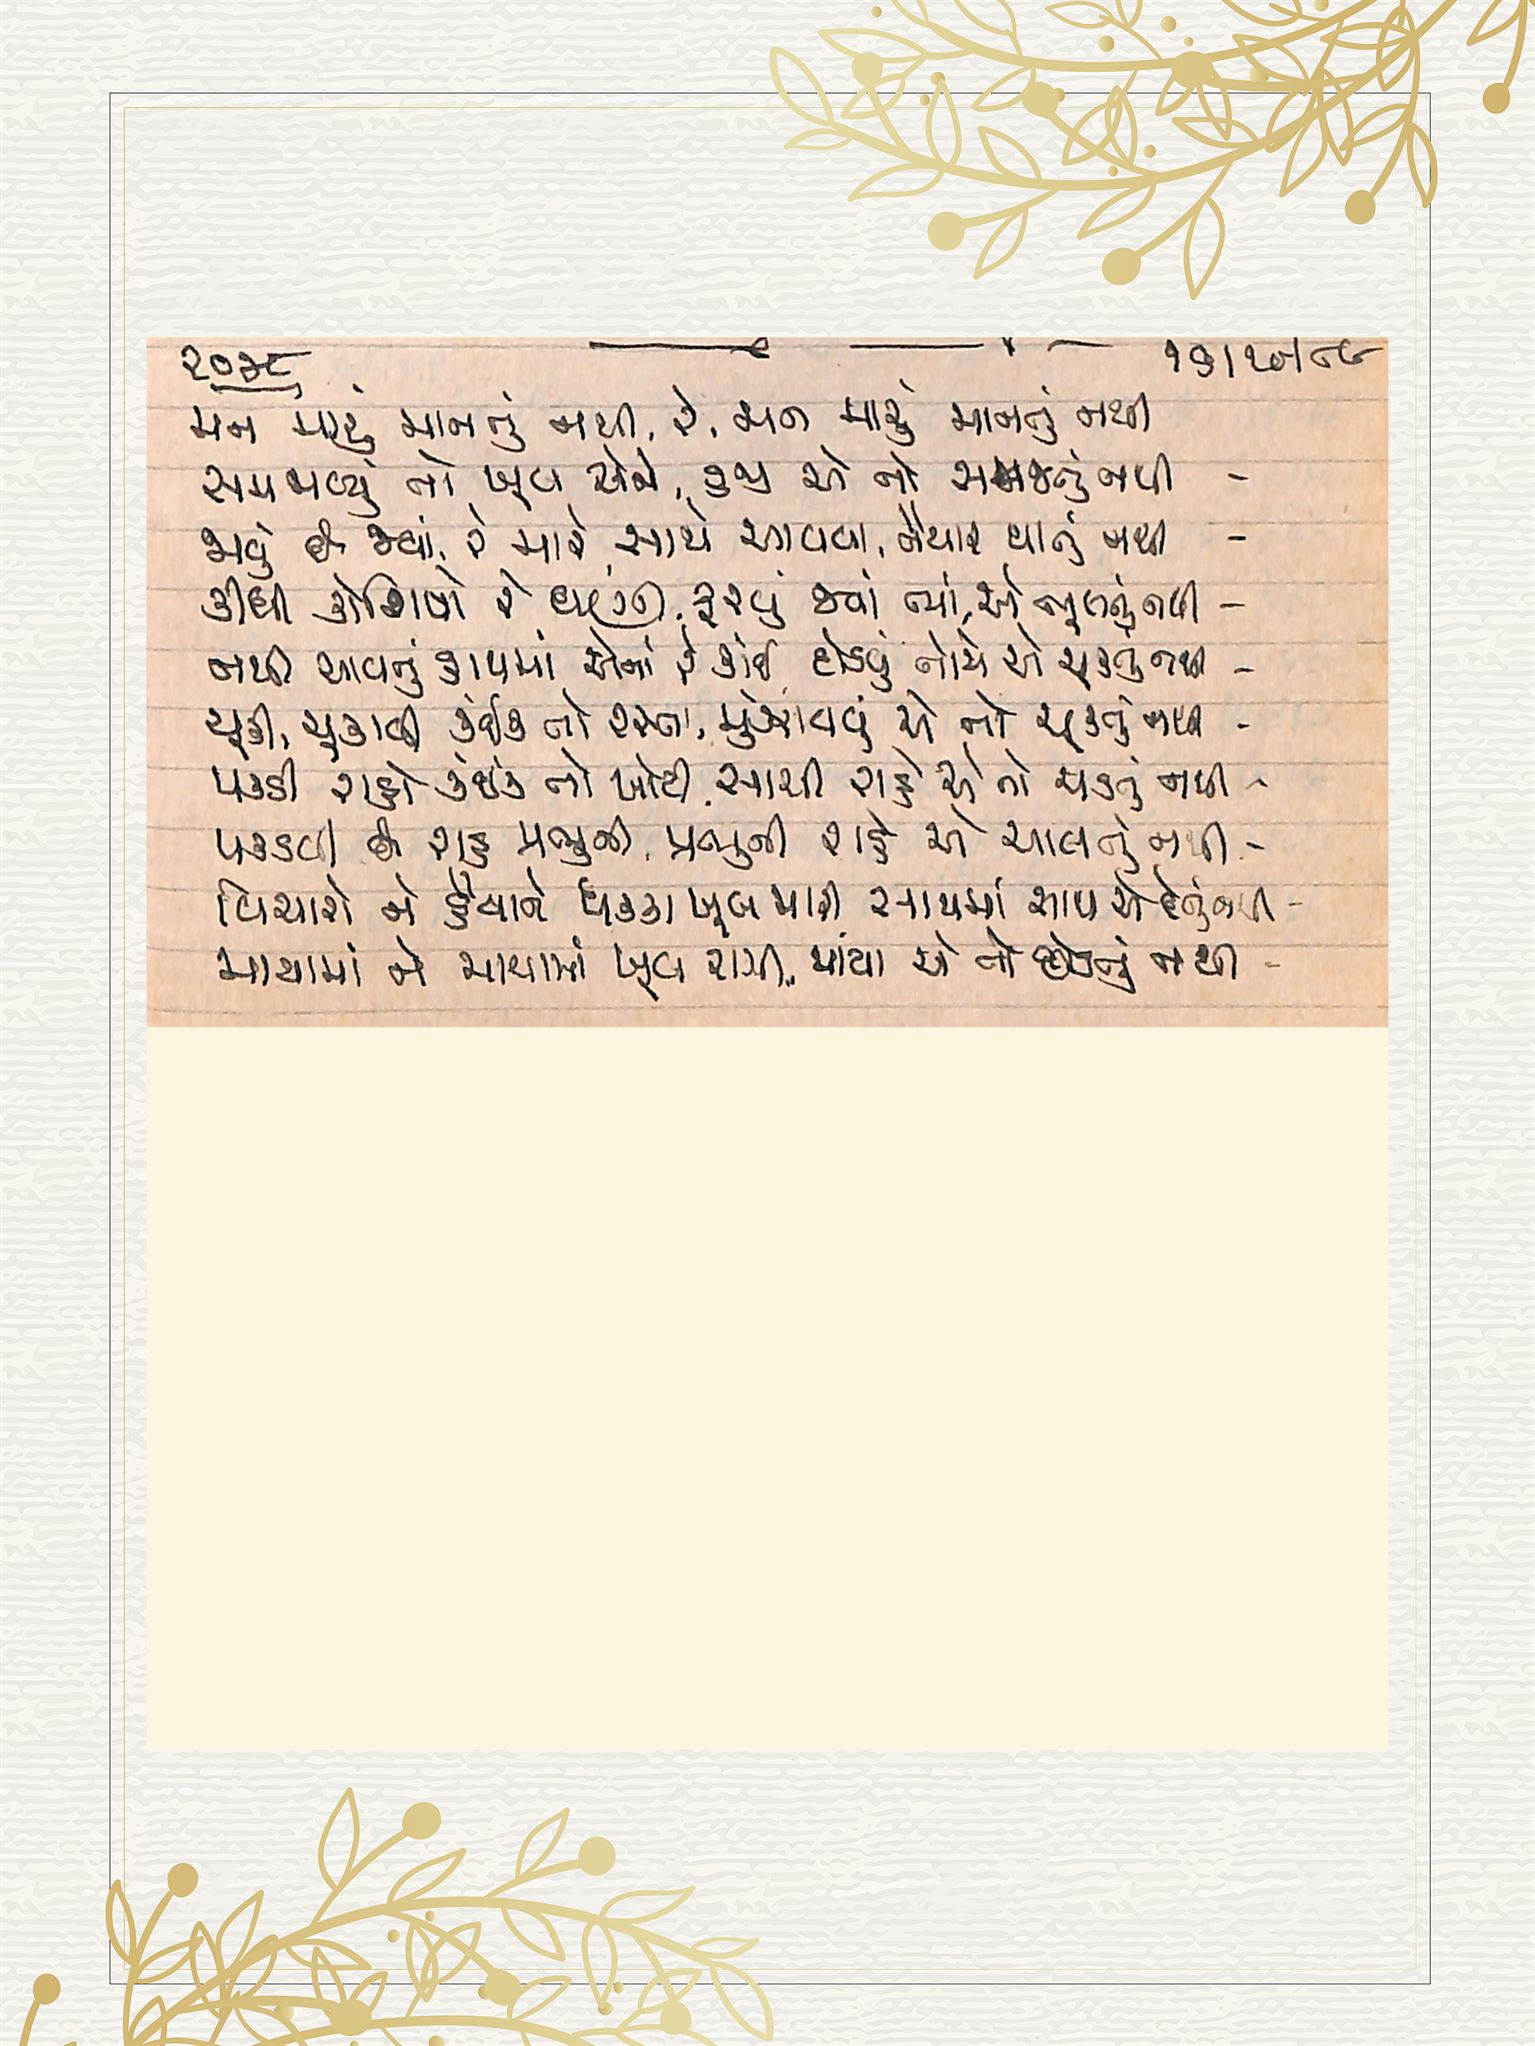 ૨૦૩૮ ૧૭/૧૦/૮૯
મન મારું માનતું નથી, રે, મન મારું માનતું નથી
સમજાવ્યું તો ખૂબ એને, હજી એ તો સમજતું નથી -
જાવું છે જ્યાં, રે મારે, સાથે આવવા, તૈયાર થાતું નથી -
કીધી કોશિષો રે ઘણી, ફરવું જ્યાં ત્યાં, એ ભૂલતું નથી -
નથી આવતું હાથમાં એનાં રે કાંઈ, દોડવું તોયે એ ચૂકતું નથી -
ચૂકી, ચુકાવી કંઈક તો રસ્તા, મુંઝાવવું એ તો ચૂકતું નથી -
પકડી રાહો કંઈક તો ખોટી, સાચી રાહે એ તો ચડતું નથી -
પકડવી છે રાહ પ્રભુજી, પ્રભુની રાહે એ ચાલતું નથી -
વિચારો ને હૈયાને ધક્કા ખૂબ મારી સાથમાં સાથ એ દેતું નથી -
માયામાં ને માયામાં ખૂબ રાચી, માયા એ તો છોડતું નથી -